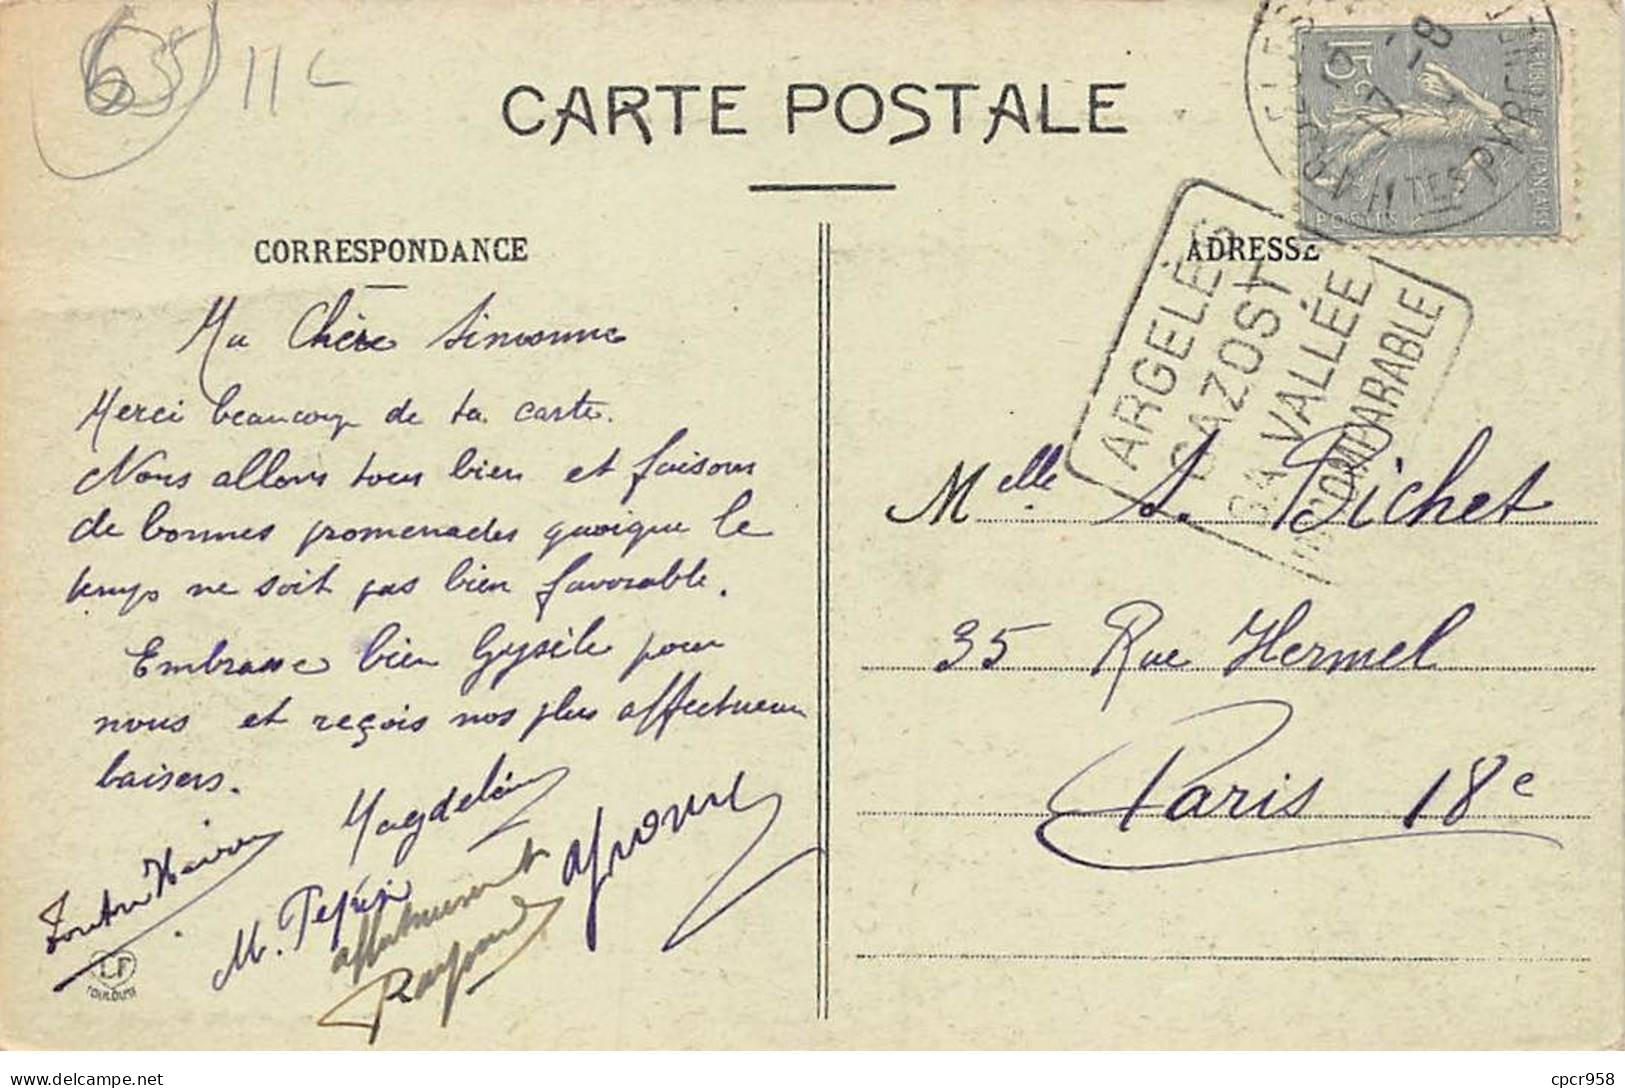 65 11 c
CARTE POSTALE
CORRESPONDANCE
Ma Chère Simonne
Merci beaucoup de ta carte.
Nous allons tous bien et faisons
de bonnes promenades quoique le
temps ne soit pas bien favorable.
Embrasse bien Gysèle pour
nous et reçois nos plus affectueux
baisers.
Magdeleine
M.
affectueusement
Raymond
LF
TOULOUSE
ADRESSE
ARGELÈS
GAZOST
SA VALLÉE
INCOMPARABLE
15c
POSTES
17 -8
HTES PYRENEES
Melle S. Pichet
35 Rue Hermel
Paris 18e
cpcr958